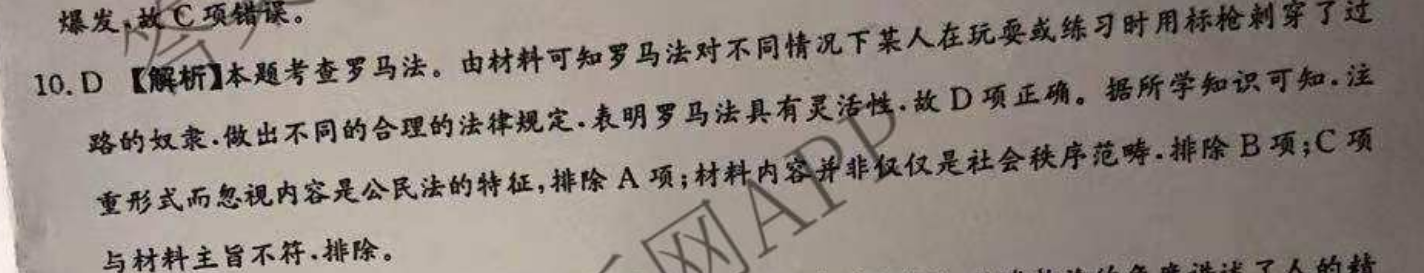 爆发,故C项错误。
10. D 【解析】本题考查罗马法。由材料可知罗马法对不同情况下某人在玩耍或练习时用标枪刺穿了过
路的奴隶,做出不同的合理的法律规定,表明罗马法具有灵活性,故D项正确。据所学知识可知,注
重形式而忽视内容是公民法的特征,排除A项;材料内容并非仅仅是社会秩序范畴,排除B项;C项
与材料主旨不符,排除。
网APP
了人的精